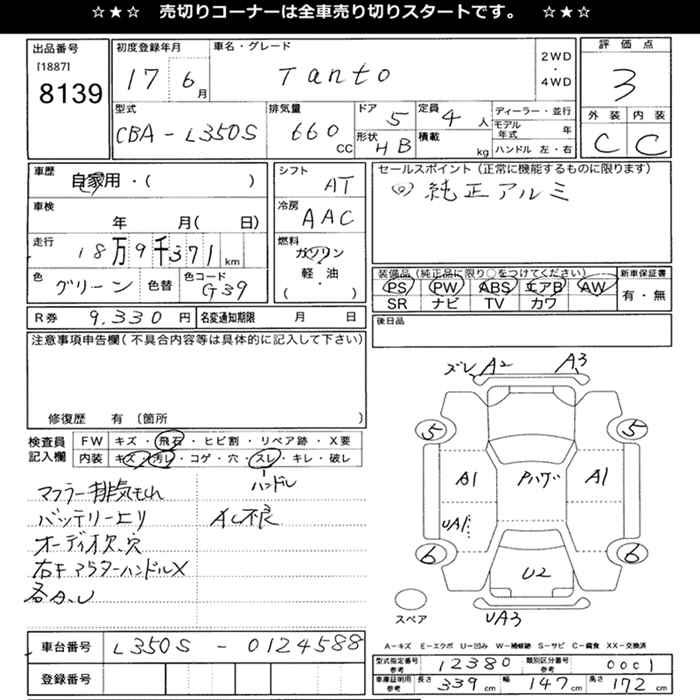 ☆★☆ 売切りコーナーは全車売り切りスタートです。 ☆★☆
出品番号
[1887]
8139
初度登録年月
17 6月
車名・グレード
Tanto
2WD
・
4WD
評価点
3
外装 内装
C C
型式
CBA-L350S
排気量
660 CC
ドア 5
形状 HB
定員 4人
積載 kg
ディーラー・並行
モデル年式 年
ハンドル 左・右
車歴
自家用・( )
車検
年 月( 日)
走行
18万9千371km
色
グリーン
色替
色コード
G39
シフト
AT
冷房
AAC
燃料
ガソリン
軽・油
( )
セールスポイント(正常に機能するものに限ります)
純正アルミ
装備品(純正品に限り○をつけてください)
PS PW ABS エアB AW
SR ナビ TV カワ
新車保証書
有・無
R券 9,330円
名変通知期限 月 日
後日品
注意事項申告欄(不具合内容等は具体的に記入して下さい)
修復歴 有 (箇所 )
検査員
記入欄
FW キズ・飛石・ヒビ割・リペア跡・X要
内装 キズ・汚レ・コゲ・穴・スレ・キレ・破レ
ハンドル
マフラー排気もれ
バッテリー上り
オーディオ欠、穴
ズレ A2 A3
5 5
A1 Pハゲ A1
UA1
6 6
U2
スペア
UA3
車台番号 L350S-0124588
登録番号
A-キズ E-エクボ U-凹み W-補修跡 S-サビ C-腐食 XX-交換済
型式指定番号 参考 12380 類別区分番号 参考 0001
車庫証明用 参考 長さ 339cm 幅 147cm 高さ 172cm